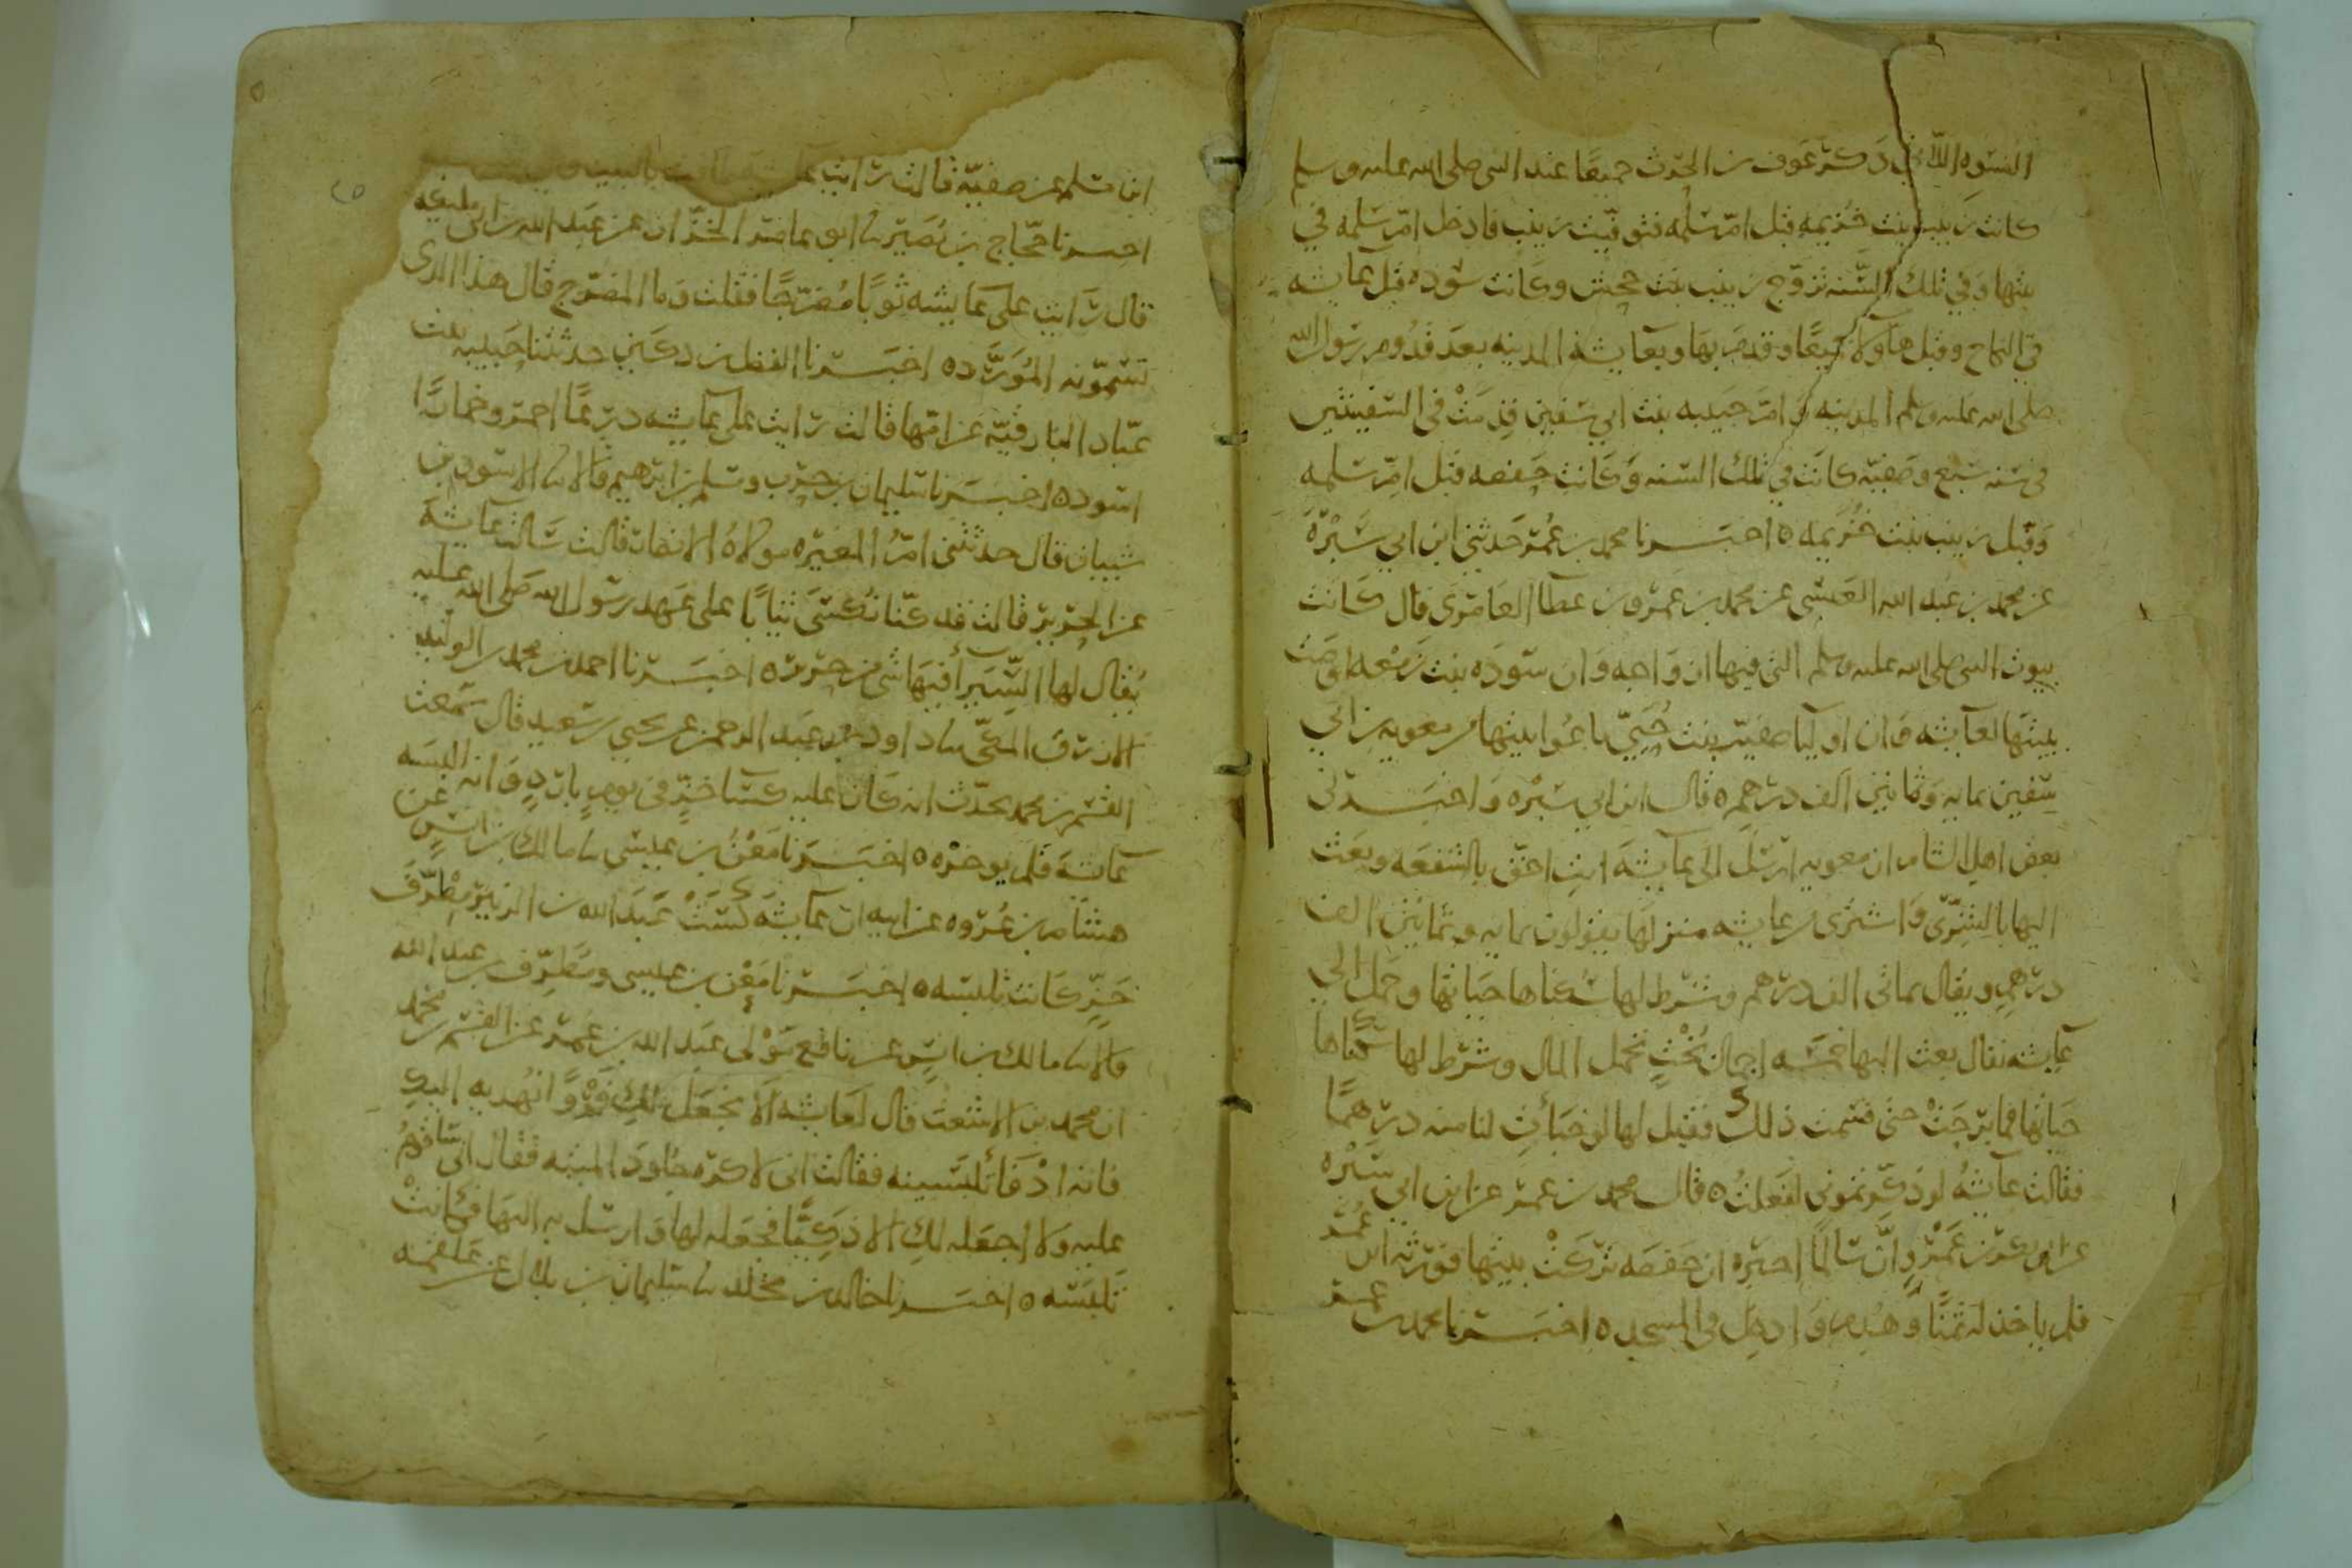 النسوة اللاتي ذكر عوف بن الحرث جميعا عند النبي صلى الله عليه وسلم
كانت زينب بنت خزيمه قبل ام سلمه فتوفيت زينب فادخل ام سلمه في
بيتها وفي تلك السنه تزوج زينب بنت جحش وكانت سوده قبل عايشه
في النكاح وقبل هاولا جميعا وقدم بها وبعايشه المدينه بعد قدوم رسول الله
صلى الله عليه وسلم المدينه وام حبيبه بنت ابي سفين قدمت في السفينتين
في سنه سبع وصفيه كانت في تلك السنه وكانت حفصه قبل ام سلمه
وقبل زينب بنت خزيمه ه اخبرنا محمد بن عمر حدثني ابن ابي سبره
عن محمد بن عبد الله العبسي عن محمد بن عمرو بن عطا العامري قال كانت
بيوت النبي صلى الله عليه وسلم التي فيها ازواجه وان سوده بنت زمعه اوصت
ببيتها لعايشه وان اوليا صفيه بنت حيي باعوا بيتها من معويه بن ابي
سفين بمايه وثمانين الف درهم ه قال ابن ابي سبره واخبرني
بعض اهل الشام ان معويه ارسل الى عايشه انت احق بالشفعه وبعث
اليها بالشرى واشترى من عايشه منزلها يقولون بمايه وثمانين الف
درهم ويقال بماتي الف درهم وشرط لها سكناها حياتها وحمل الى
عايشه يقال بعث اليها خمسه اجمال بخت تحمل المال وشرط لها سكناها
حياتها فما برحت حتى قسمت ذلك فقيل لها لو خبات لنا منه درهما
فقالت عايشه لو ذكرتموني لفعلت ه قال محمد بن عمر عن ابن ابي سبره
عن ابي بكر بن عمر وان سالما اخبره ان حفصه تركت بيتها فورثه ابن عمر
فلم ياخذ له ثمنا وهدم وادخل في المسجد ه اخبرنا محمد بن عمر
ابن سلم عن صفيه قالت رايت
اخبرنا حجاج بن نصير نا ابو عامر الخزاز عن عبد الله بن ابي مليكه
قال رايت على عايشه ثوبا مضرجا فقلت وما المضرج قال هذا الذي
تسمونه المورد ه اخبرنا الفضل بن دكين حدثتنا حبيبه بنت
عباد البارقيه عن امها قالت رايت على عايشه درعا احمر وخمارا
اسود ه اخبرنا سليمان بن حرب ومسلم بن ابرهيم قالا نا الاسود بن
شيبان قال حدثتني ام المغيره مولاه الانصار قالت سالت عايشه
عن الحرير قالت قد كنا نكسى ثيابا على عهد رسول الله صلى الله عليه
يقال لها السيرا فيها شي من حرير ه اخبرنا احمد بن محمد بن الوليد
الازرقي المكي نا داود بن عبد الرحمن عن يحيى بن سعيد قال سمعت
القسم بن محمد يحدث انه كان عليه كسا خز في يوم بارد وانه البسه
عايشه فلم يوخره ه اخبرنا معن بن عيسى نا مالك بن انس عن
هشام بن عروه عن ابيه ان عايشه كست عبد الله بن الزبير مطرف
خز كانت تلبسه ه اخبرنا معن بن عيسى ومطرف بن عبد الله
قالا نا مالك بن انس عن نافع مولى عبد الله بن عمر عن القسم بن محمد
ان محمد بن الاشعث قال لعايشه الا نجعل لك فروا نهديه اليك
فانه ادفا تلبسينه فقالت اني لاكره جلود الميته فقال اني سا قوم
عليه ولا اجعله لك الا ذكيا فجعله لها وارسل به اليها فكانت
تلبسه ه اخبرنا خالد بن مخلد نا سليمان بن بلال عن علقمه